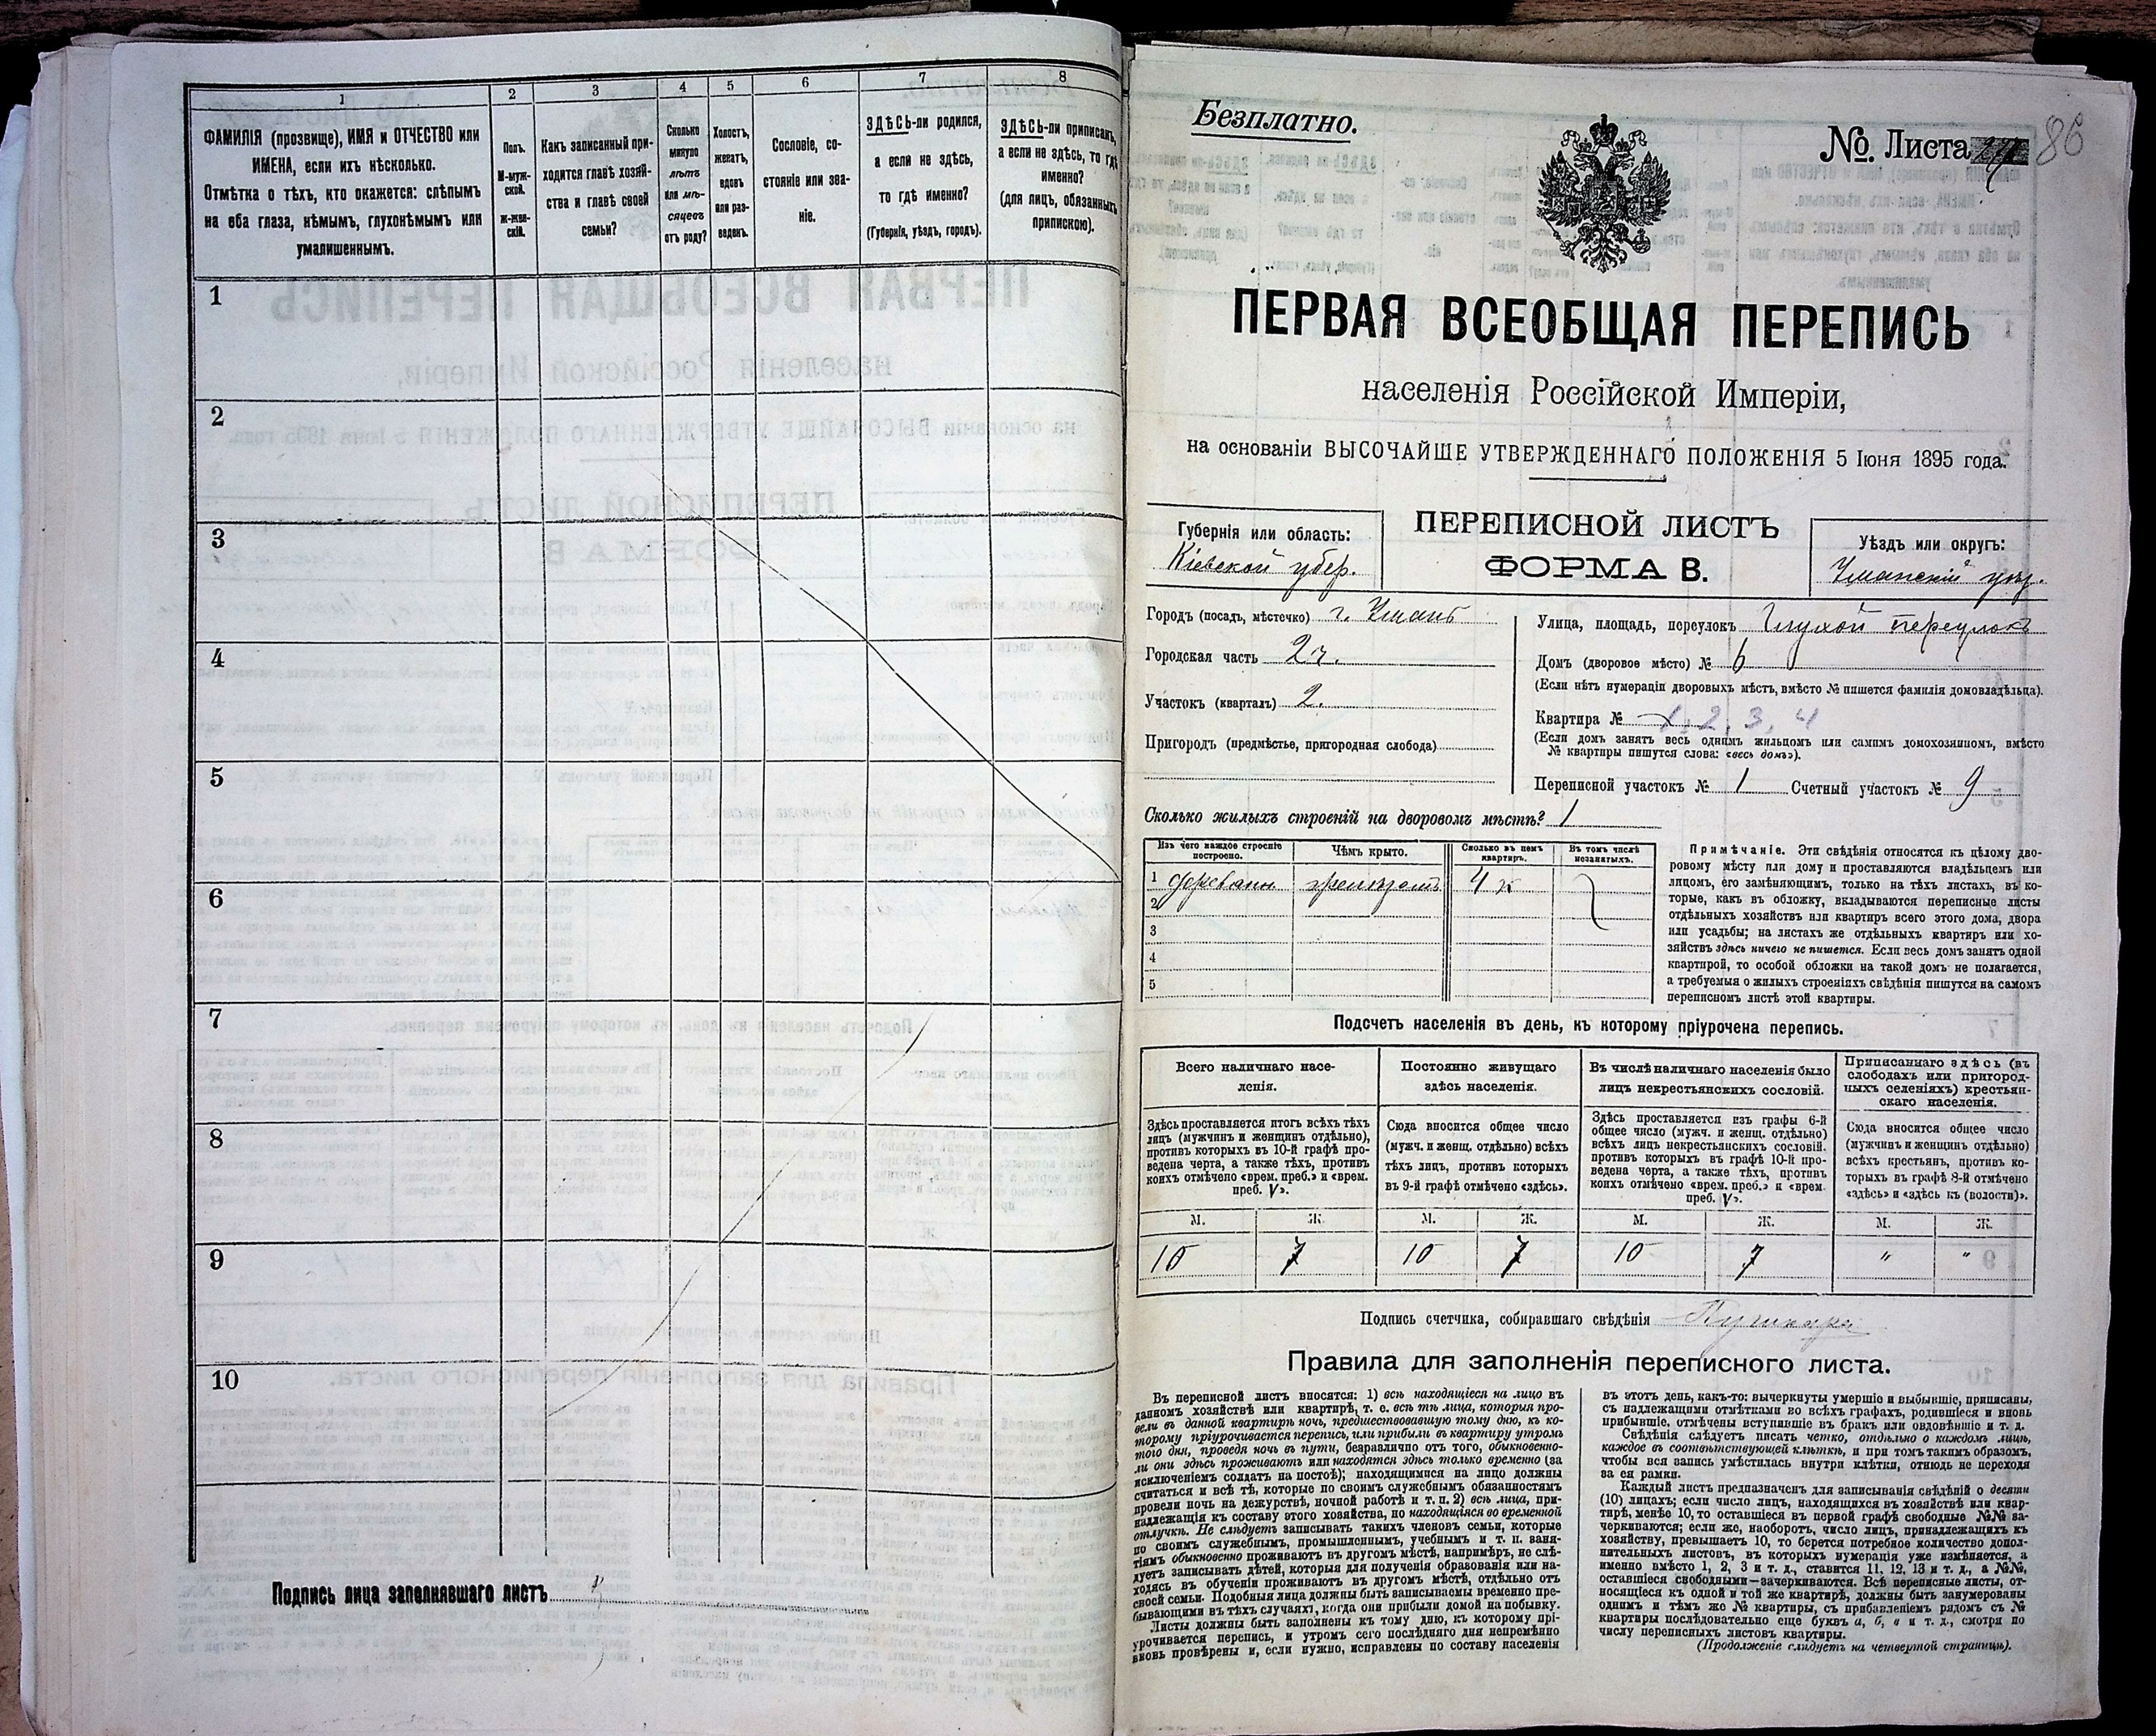 1
2
3
4
5
6
7
8
ФАМИЛІЯ (прозвище), ИМЯ и ОТЧЕСТВО или
ИМЕНА, если ихъ нѣсколько.
Отмѣтка о тѣхъ, кто окажется: слѣпымъ
на оба глаза, нѣмымъ, глухонѣмымъ или
умалишеннымъ.
Полъ.
М-муж-
ской.
ж-жен-
скій.
Какъ записанный при-
ходится главѣ хозяй-
ства и главѣ своей
семьи?
Сколько
минуло
лѣтъ
или мѣ-
сяцевъ
отъ роду?
Холостъ,
женатъ,
вдовъ
или раз-
веденъ.
Сословіе, со-
стояніе или зва-
ніе.
ЗДѢСЬ-ли родился,
а если не здѣсь,
то гдѣ именно?
(Губернія, уѣздъ, городъ).
ЗДѢСЬ-ли приписанъ,
а если не здѣсь, то гдѣ
именно?
(для лицъ, обязанныхъ
припискою).
1
2
3
4
5
6
7
8
9
10
Подпись лица заполнявшаго листъ
Безплатно.
№. Листа
86
ПЕРВАЯ ВСЕОБЩАЯ ПЕРЕПИСЬ
населенія Россійской Имперіи,
на основаніи ВЫСОЧАЙШЕ УТВЕРЖДЕННАГО ПОЛОЖЕНІЯ 5 Іюня 1895 года.
Губернія или область:
Кіевской губер.
ПЕРЕПИСНОЙ ЛИСТЪ
ФОРМА В.
Уѣздъ или округъ:
Уманскій уѣз.
Городъ (посадъ, мѣстечко) г. Умань
Городская часть 2 ч.
Участокъ (кварталъ) 2.
Пригородъ (предмѣстье, пригородная слобода)
Улица, площадь, переулокъ Глухой переулокъ
Домъ (дворовое мѣсто) № 6
(Если нѣтъ нумераціи дворовыхъ мѣстъ, вмѣсто № пишется фамилія домовладѣльца).
Квартира № 1, 2, 3, 4
(Если домъ занятъ весь однимъ жильцомъ или самимъ домохозяиномъ, вмѣсто
№ квартиры пишутся слова: «весь домъ»).
Переписной участокъ № 1 Счетный участокъ № 9
Сколько жилыхъ строеній на дворовомъ мѣстѣ? 1
Изъ чего каждое строеніе
построено.
Чѣмъ крыто.
Сколько въ немъ
квартиръ.
Въ томъ числѣ
незанятыхъ.
1 деревян. желѣзомъ 4
2
3
4
5
Примѣчаніе. Эти свѣдѣнія относятся къ цѣлому дво-
ровому мѣсту или дому и проставляются владѣльцемъ или
лицомъ, его замѣняющимъ, только на тѣхъ листахъ, въ ко-
торые, какъ въ обложку, вкладываются переписные листы
отдѣльныхъ хозяйствъ или квартиръ всего этого дома, двора
или усадьбы; на листахъ же отдѣльныхъ квартиръ или хо-
зяйствъ здѣсь ничего не пишется. Если весь домъ занятъ одной
квартирой, то особой обложки на такой домъ не полагается,
а требуемыя о жилыхъ строеніяхъ свѣдѣнія пишутся на самомъ
переписномъ листѣ этой квартиры.
Подсчетъ населенія въ день, къ которому пріурочена перепись.
Всего наличнаго насе-
ленія.
Постоянно живущаго
здѣсь населенія.
Въ числѣ наличнаго населенія было
лицъ некрестьянскихъ сословій.
Приписаннаго здѣсь (въ
слободахъ или пригород-
ныхъ селеніяхъ) крестьян-
скаго населенія.
Здѣсь проставляется итогъ всѣхъ тѣхъ
лицъ (мужчинъ и женщинъ отдѣльно),
противъ которыхъ въ 10-й графѣ про-
ведена черта, а также тѣхъ, противъ
коихъ отмѣчено «врем. преб.» и «врем.
преб. V».
Сюда вносится общее число
(мужч. и женщ. отдѣльно) всѣхъ
тѣхъ лицъ, противъ которыхъ
въ 9-й графѣ отмѣчено «здѣсь».
Здѣсь проставляется изъ графы 6-й
общее число (мужч. и женщ. отдѣльно)
всѣхъ лицъ некрестьянскихъ сословій.
противъ которыхъ въ графѣ 10-й про-
ведена черта, а также тѣхъ, противъ
коихъ отмѣчено «врем. преб.» и «врем.
преб. V».
Сюда вносится общее число
(мужчинъ и женщинъ отдѣльно)
всѣхъ крестьянъ, противъ ко-
торыхъ въ графѣ 8-й отмѣчено
«здѣсь» и «здѣсь къ (волости)».
М. Ж. М. Ж. М. Ж. М. Ж.
10 7 10 7 10 7 " "
Подпись счетчика, собиравшаго свѣдѣнія
Правила для заполненія переписного листа.
Въ переписной листъ вносятся: 1) всѣ находящіеся на лицо въ
данномъ хозяйствѣ или квартирѣ, т. е. всѣ тѣ лица, которыя про-
вели въ данной квартирѣ ночь, предшествовавшую тому дню, къ ко-
торому пріурочивается перепись, или прибыли въ квартиру утромъ
того дня, проведя ночь въ пути, безразлично отъ того, обыкновенно-
ли они здѣсь проживаютъ или находятся здѣсь только временно (за
исключеніемъ солдатъ на постоѣ); находящимися на лицо должны
считаться и всѣ тѣ, которые по своимъ служебнымъ обязанностямъ
провели ночь на дежурствѣ, ночной работѣ и т. п. 2) всѣ лица, при-
надлежащія къ составу этого хозяйства, но находящіяся во временной
отлучкѣ. Не слѣдуетъ записывать такихъ членовъ семьи, которые
по своимъ служебнымъ, промышленнымъ, учебнымъ и т. п. заня-
тіямъ обыкновенно проживаютъ въ другомъ мѣстѣ, напримѣръ, не слѣ-
дуетъ записывать дѣтей, которыя для полученія образованія или на-
ходясь въ обученіи проживаютъ въ другомъ мѣстѣ, отдѣльно отъ
своей семьи. Подобныя лица должны быть записываемы временно пре-
бывающими въ тѣхъ случаяхъ, когда они прибыли домой на побывку.
Листы должны быть заполнены къ тому дню, къ которому прі-
урочивается перепись, и утромъ сего послѣдняго дня непремѣнно
вновь провѣрены и, если нужно, исправлены по составу населенія
въ этотъ день, какъ-то: вычеркнуты умершіе и выбывшіе, приписаны,
съ надлежащими отмѣтками во всѣхъ графахъ, родившіеся и вновь
прибывшіе, отмѣчены вступившіе въ бракъ или овдовѣвшіе и т. д.
Свѣдѣнія слѣдуетъ писать четко, отдѣльно о каждомъ лицѣ,
каждое въ соотвѣтствующей клѣткѣ, и при томъ такимъ образомъ,
чтобы вся запись умѣстилась внутри клѣтки, отнюдь не переходя
за ея рамки.
Каждый листъ предназначенъ для записыванія свѣдѣній о десяти
(10) лицахъ; если число лицъ, находящихся въ хозяйствѣ или квар-
тирѣ, менѣе 10, то оставшіеся въ первой графѣ свободные №№ за-
черкиваются; если же, наоборотъ, число лицъ, принадлежащихъ къ
хозяйству, превышаетъ 10, то берется потребное количество допол-
нительныхъ листовъ, въ которыхъ нумерація уже измѣняется, а
именно вмѣсто 1, 2, 3 и т. д., ставится 11, 12, 13 и т. д., а №№,
оставшіеся свободными—зачеркиваются. Всѣ переписные листы, от-
носящіеся къ одной и той же квартирѣ, должны быть занумерованы
однимъ и тѣмъ же № квартиры, съ прибавленіемъ рядомъ съ №
квартиры послѣдовательно еще буквъ а, б, в и т. д., смотря по
числу переписныхъ листовъ квартиры.
(Продолженіе слѣдуетъ на четвертой страницѣ).